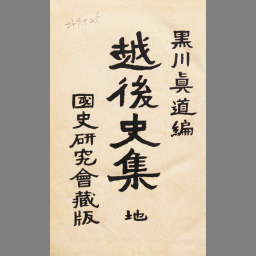 黒川眞道編
越後史集
地
國史研究會藏版